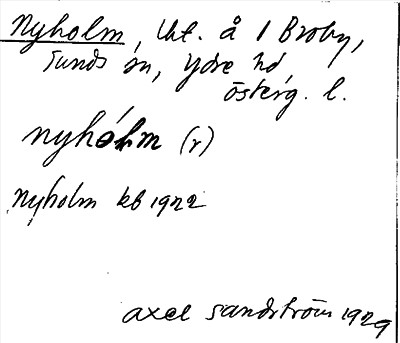 Nyholm, lht. å 1 Broby,
Sunds sn, Ydre hd
österg. l.
nyhólm (r)
Nyholm kb 1922
axel sandström 1929